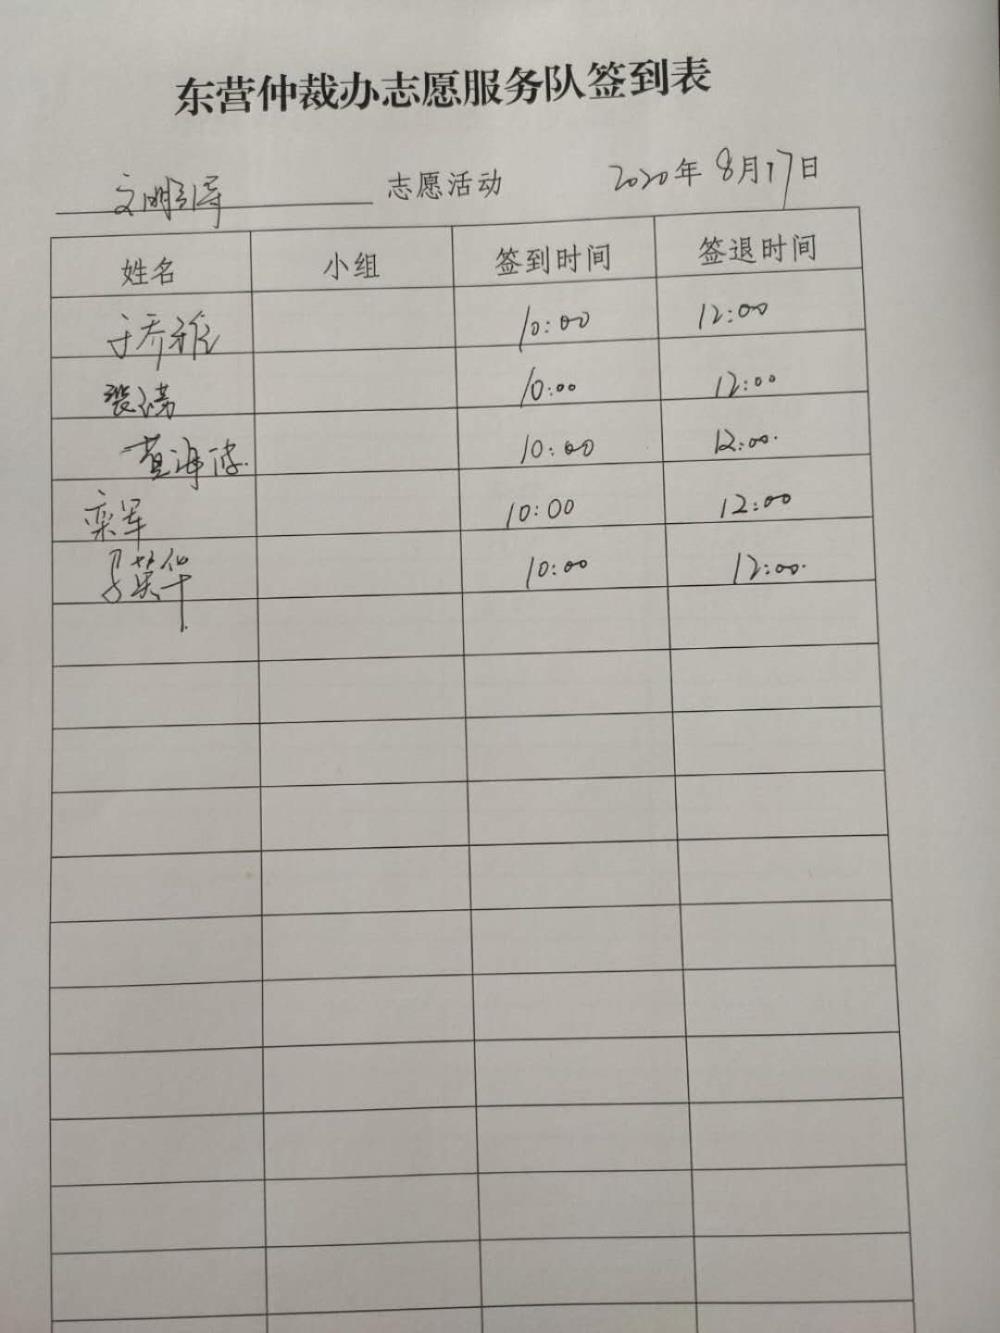 东营仲裁办志愿服务队签到表
文明引导 志愿活动 2020年8月17日
姓名 小组 签到时间 签退时间
于乔雅 10:00 12:00
10:00 12:00
黄海涛 10:00 12:00
栾军 10:00 12:00
英华 10:00 12:00